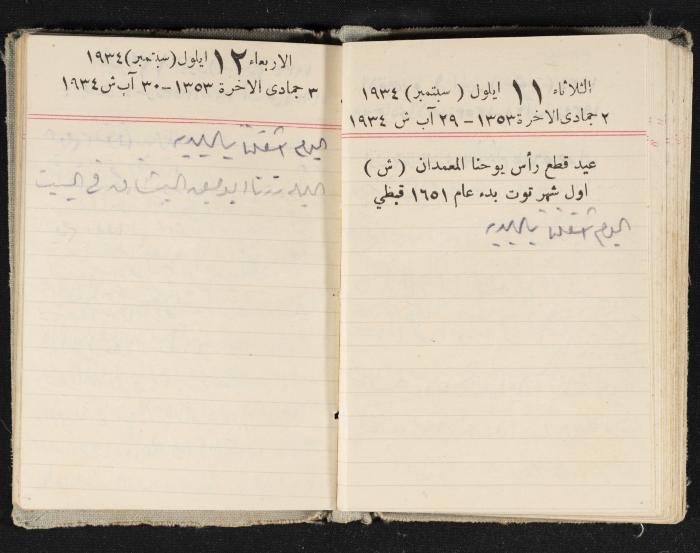 الثلاثاء ١١ ايلول ( سبتمبر ) ١٩٣٤
٢ جمادى الاخرة ١٣٥٣ – ٢٩ آب ش ١٩٣٤
عيد قطع رأس يوحنا المعمدان ( ش )
اول شهر توت بدء عام ١٦٥١ قبطي
اليوم اشتغلنا بالبلديه
الاربعاء ١٢ ايلول (سبتمبر) ١٩٣٤
٣ جمادى الاخرة ١٣٥٣ – ٣٠ آب ش ١٩٣٤
اليوم اشتغلنا بالبلديه
الليله زرنا في البيت